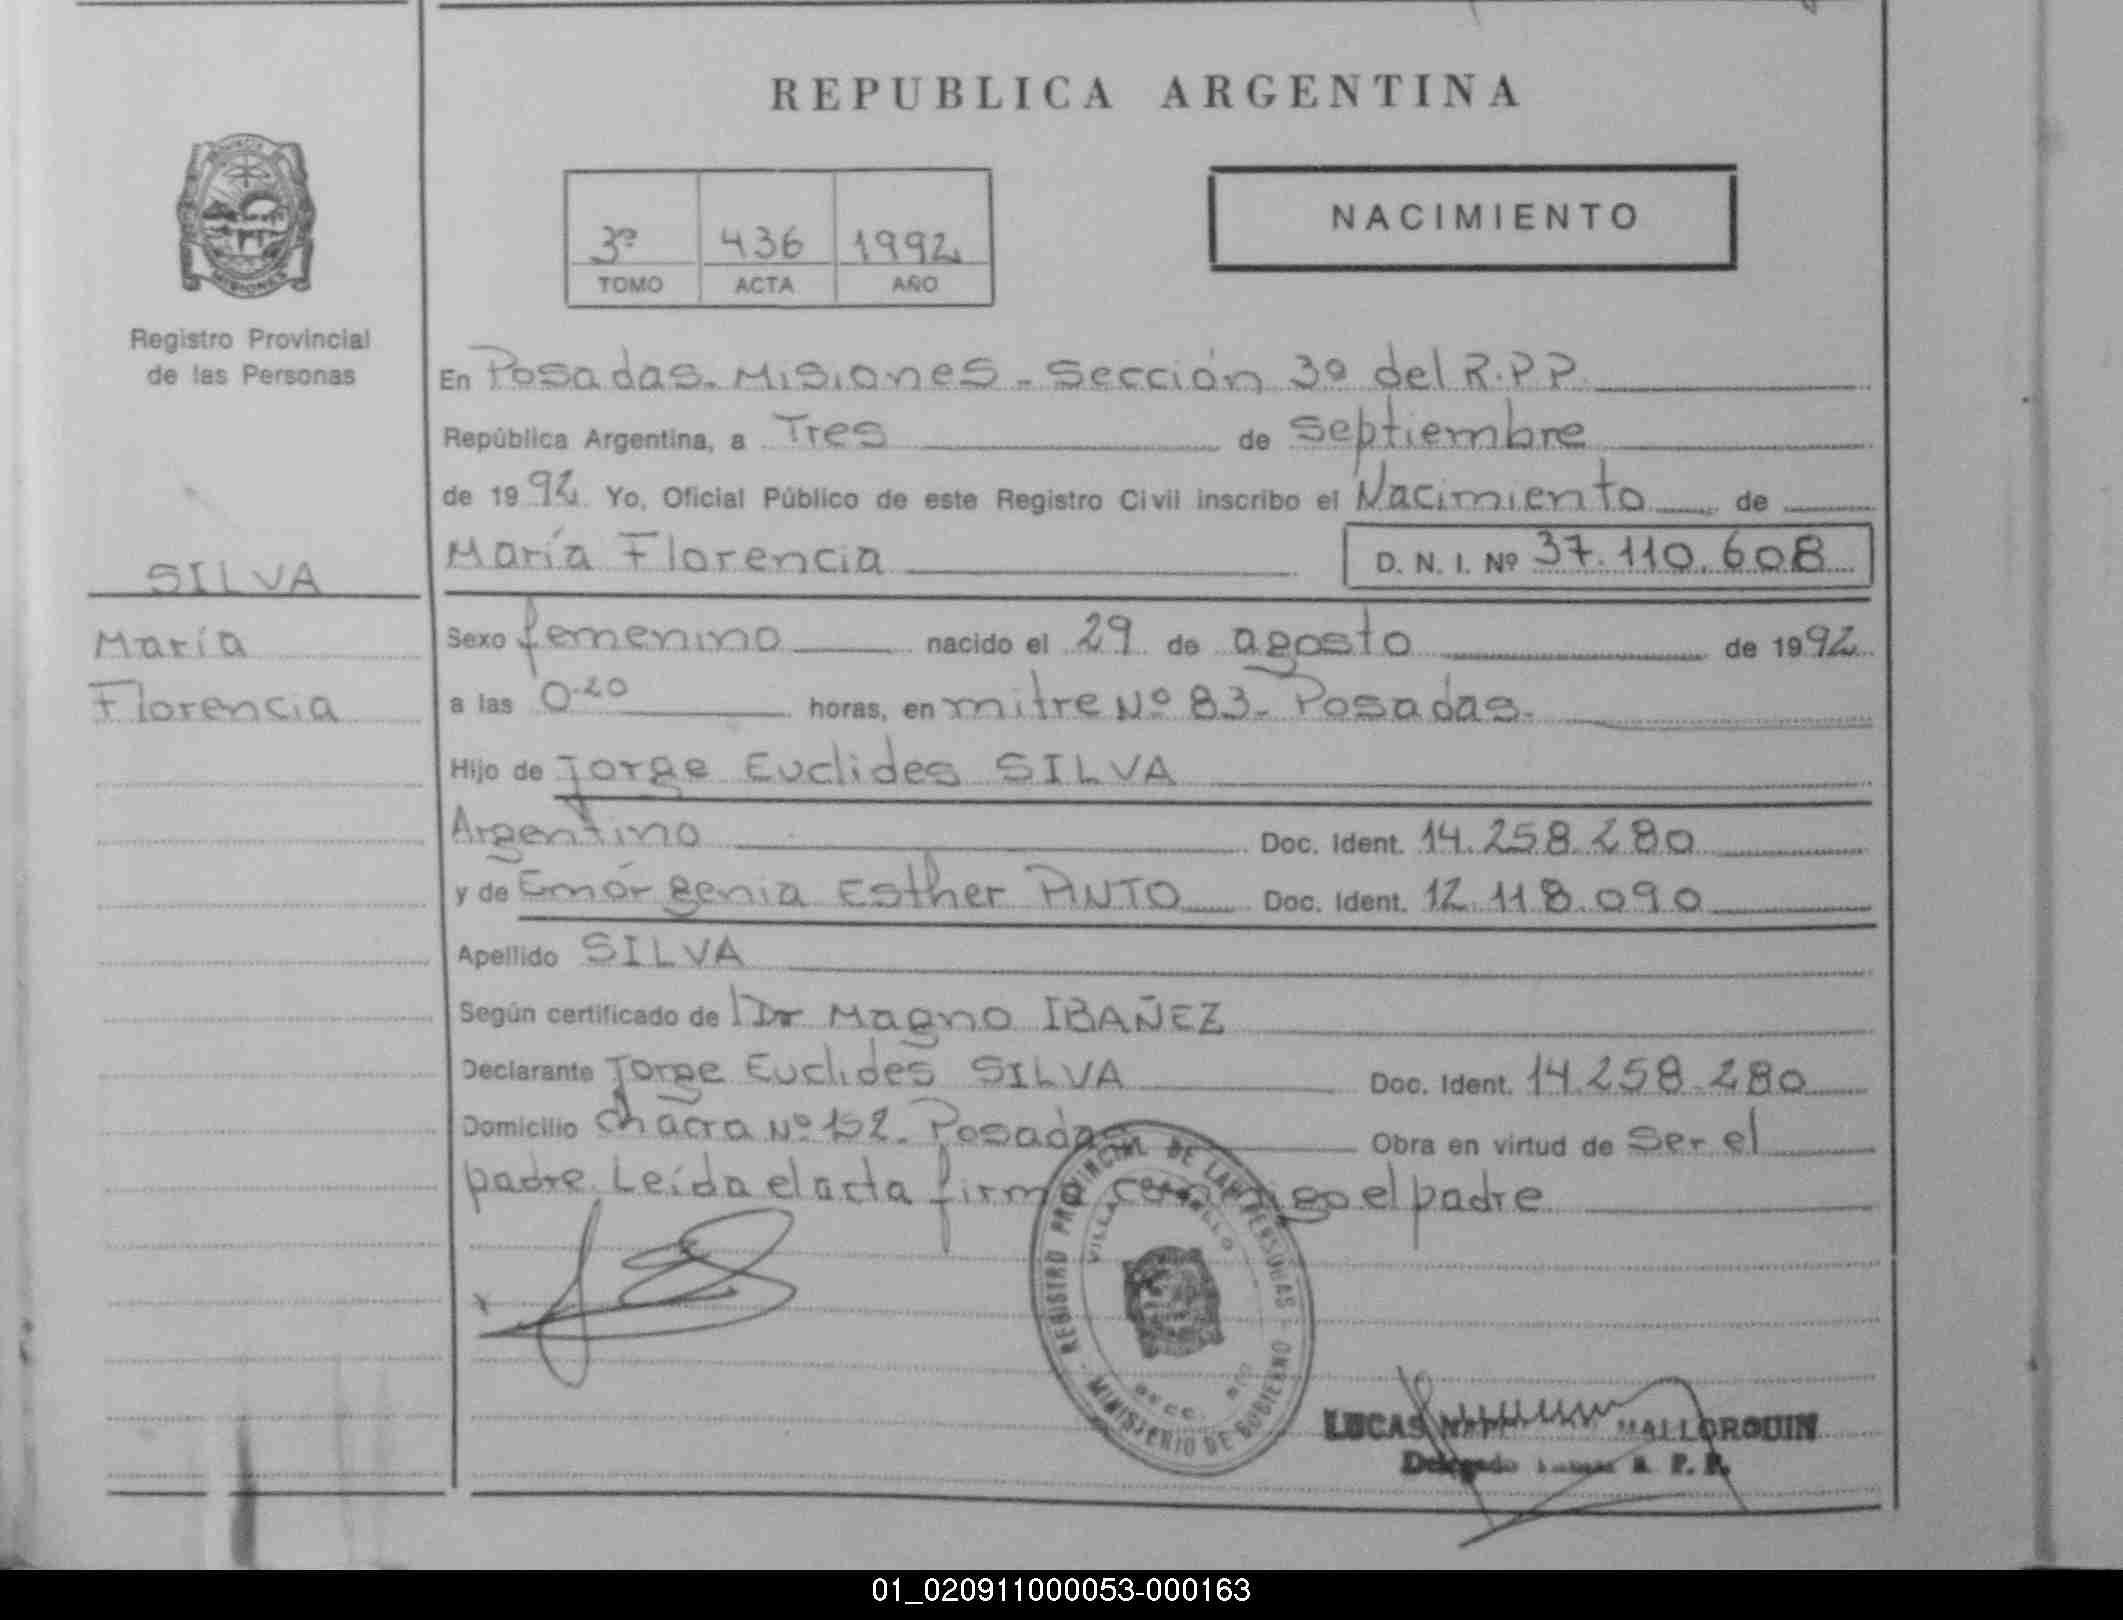 REPUBLICA ARGENTINA
3º 436 1992
TOMO ACTA AÑO
NACIMIENTO
Registro Provincial
de las Personas
SILVA
María
Florencia
En Posadas. Misiones. Sección 3º del R.P.P.
República Argentina, a Tres de Septiembre
de 1992 Yo, Oficial Público de este Registro Civil inscribo el Nacimiento de
María Florencia D. N. I. Nº 37.110.608
Sexo femenino nacido el 29 de agosto de 1992
a las 0.20 horas, en mitre Nº 83. Posadas.
Hijo de Jorge Euclides SILVA
Argentino Doc. Ident. 14.258.280
y de Emórgenia Esther PINTO Doc. Ident. 12.118.090
Apellido SILVA
Según certificado de Dr Magno IBAÑEZ
Declarante Jorge Euclides SILVA Doc. Ident. 14.258.280
Domicilio Chacra Nº 152. Posadas Obra en virtud de Ser el
padre. Leída el acta firma conmigo el padre
REGISTRO PROVINCIAL DE LAS PERSONAS
MINISTERIO DE GOBIERNO
VILLA
LUCAS MALLORQUIN
Delegado R. P. P.
01_020911000053-000163